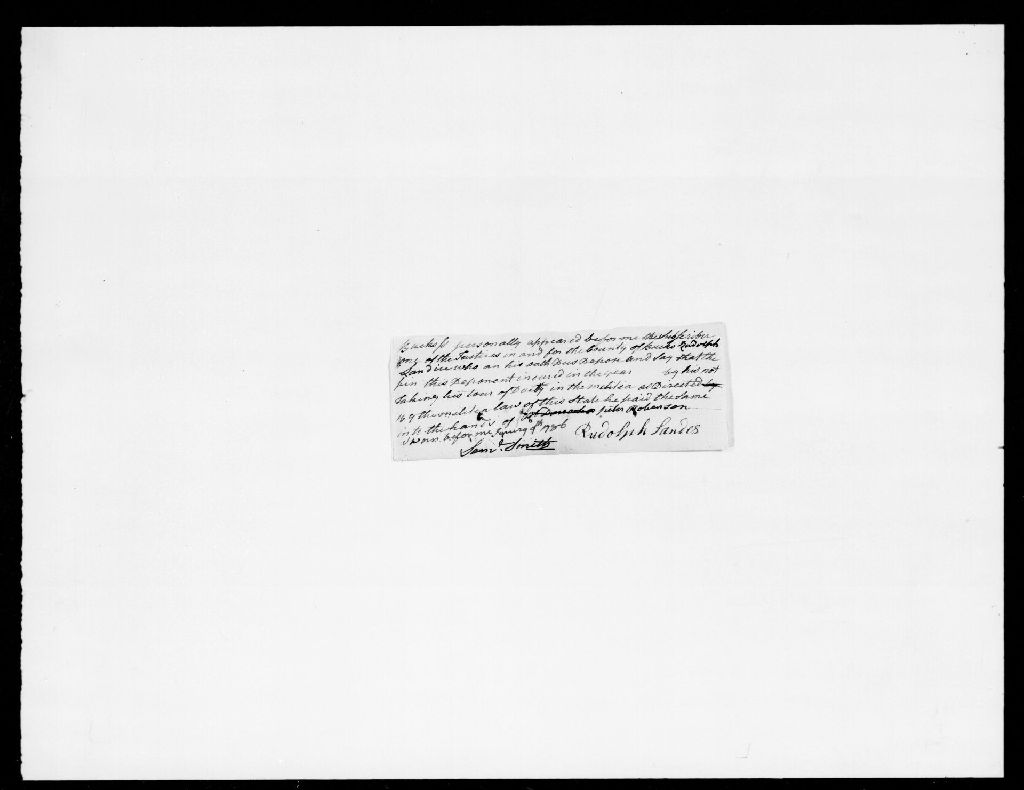 Bucks ss personally appeared before me the Subscriber
one of the Justices in and for the County of Bucks Rudolph
Landis who on his oath Does Depose and Say that the
fin this Deponant incured in the year by his not
Taking his tour of Duity in the melitia as Directed by
by the melitia law of this State he paid the Same
into the hands of peter Roberson
Sworn before me 1786
Rudolph Landes
Samˡ. Smith